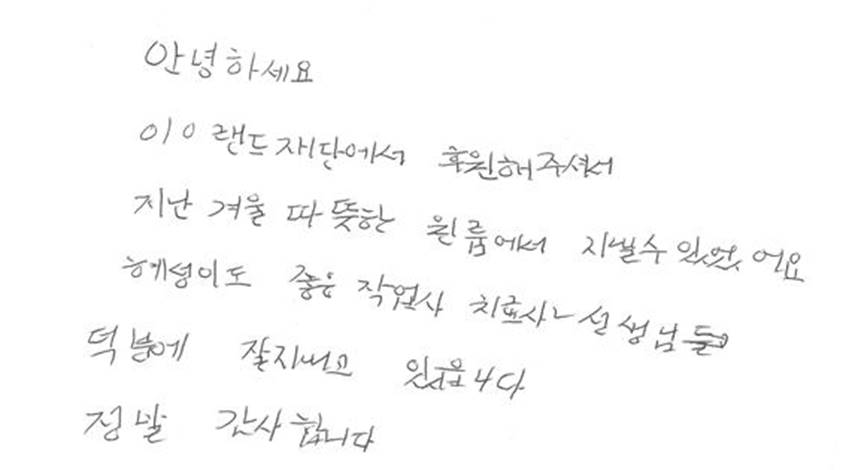 안녕하세요
이이랜드재단에서 후원해주셔서
지난 겨울 따뜻한 원룸에서 지낼수 있었어요
혜성이도 좋은 작업사 치료사 선생님들
덕분에 잘지내고 있습니다
정말 감사합니다